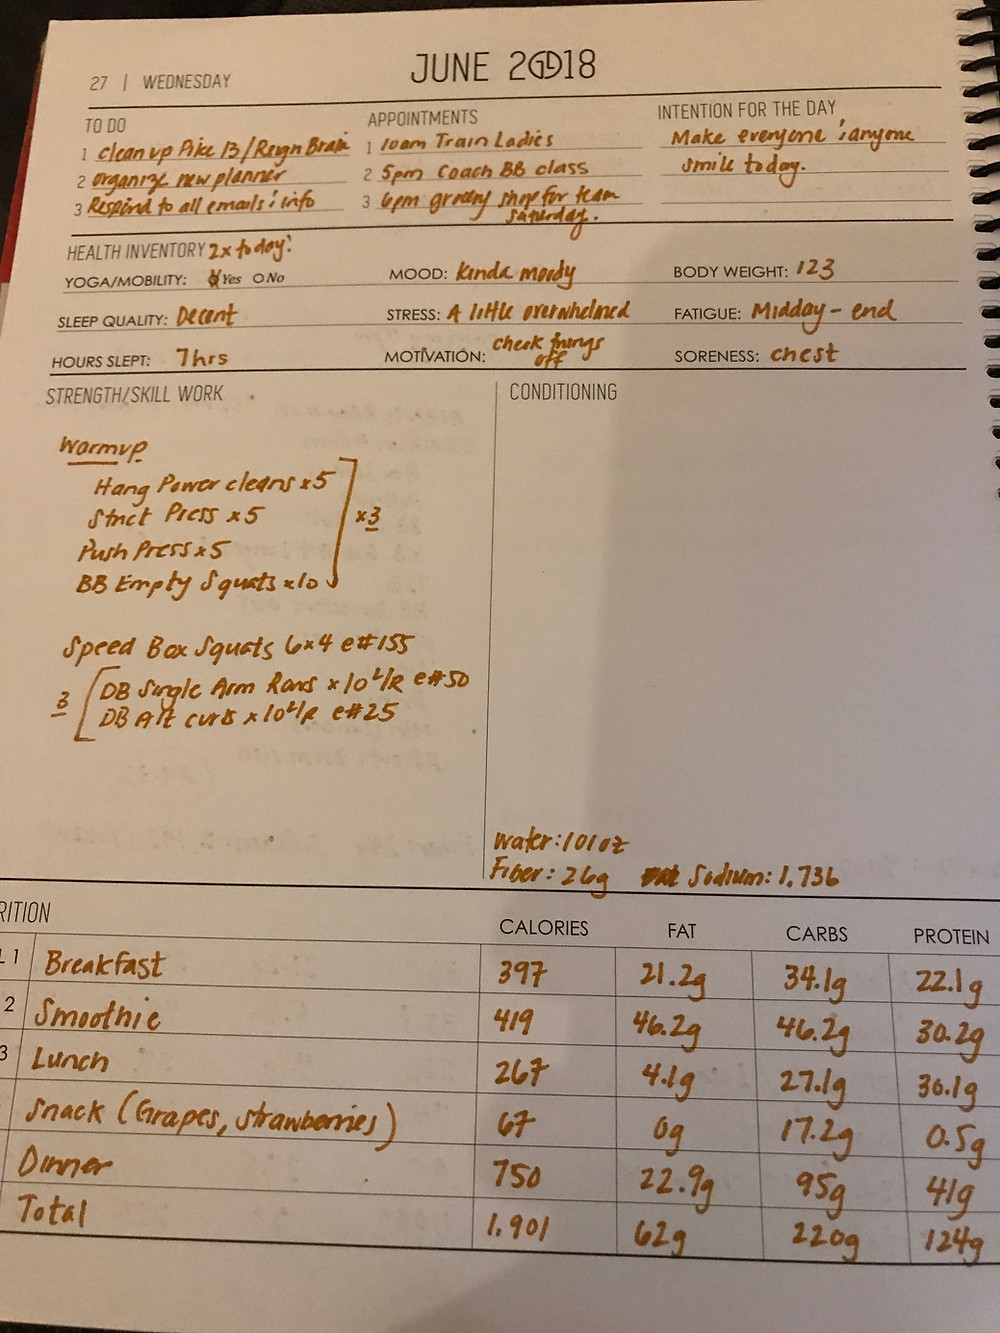 JUNE 2018
27 | WEDNESDAY
TO DO
1 clean up Pike 13/Reign Brain
2 organize new planner
3 Respond to all emails & info
APPOINTMENTS
1 10am Train Ladies
2 5pm Coach BB class
3 6pm grocery shop for team
saturday.
INTENTION FOR THE DAY
Make everyone & anyone
smile today.
HEALTH INVENTORY 2x today!
YOGA/MOBILITY: Yes No
MOOD: kinda moody
BODY WEIGHT: 123
SLEEP QUALITY: Decent
STRESS: A little overwhelmed
FATIGUE: Midday - end
HOURS SLEPT: 7hrs
MOTIVATION: check things
off
SORENESS: chest
STRENGTH/SKILL WORK
Warmup
Hang Power cleans x5
Strict Press x5
Push Press x5
BB Empty Squats x10
x3
Speed Box Squats 6x4 @#155
3
DB Single Arm Rows x10 L/R @#50
DB Alt curls x10 L/R @#25
CONDITIONING
Water: 101oz
Fiber: 26g Sodium: 1,736
RITION
CALORIES FAT CARBS PROTEIN
L 1 Breakfast 397 21.2g 34.1g 22.1g
2 Smoothie 419 46.2g 46.2g 30.2g
3 Lunch 267 4.1g 27.1g 30.1g
Snack (Grapes, strawberries) 67 0g 17.2g 0.5g
Dinner 750 22.9g 95g 41g
Total 1,901 62g 220g 124g